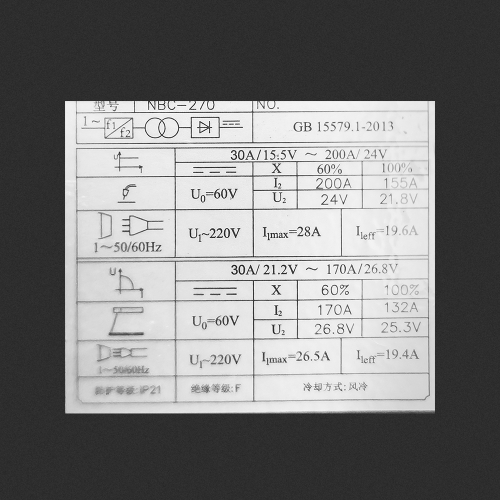 型号 NBC-270 NO.
1~ f1 f2 GB 15579.1-2013
30A/15.5V ~ 200A/24V
X 60% 100%
U₀=60V I₂ 200A 155A
U₂ 24V 21.8V
1~50/60Hz U₁~220V I₁max=28A I₁eff=19.6A
30A/21.2V ~ 170A/26.8V
X 60% 100%
U₀=60V I₂ 170A 132A
U₂ 26.8V 25.3V
1~50/60Hz U₁~220V I₁max=26.5A I₁eff=19.4A
防护等级:IP21 绝缘等级:F 冷却方式:风冷